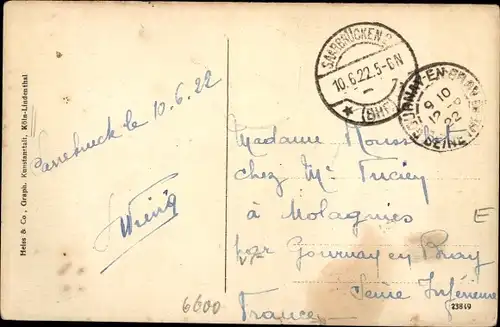 Heiss & Co., Graph. Kunstanstalt, Köln-Lindenthal
Sarrebruck le 10.6.22
SAARBRÜCKEN 2
10.6.22.5-6N
(BHF)
GOURNAY-EN-BRAY
9 10
12 -6
22
SEINE INFRE
Madame
chez Mr
à Molagnies
par Gournay en Bray
Seine Inférieure
France
6600
E
23849